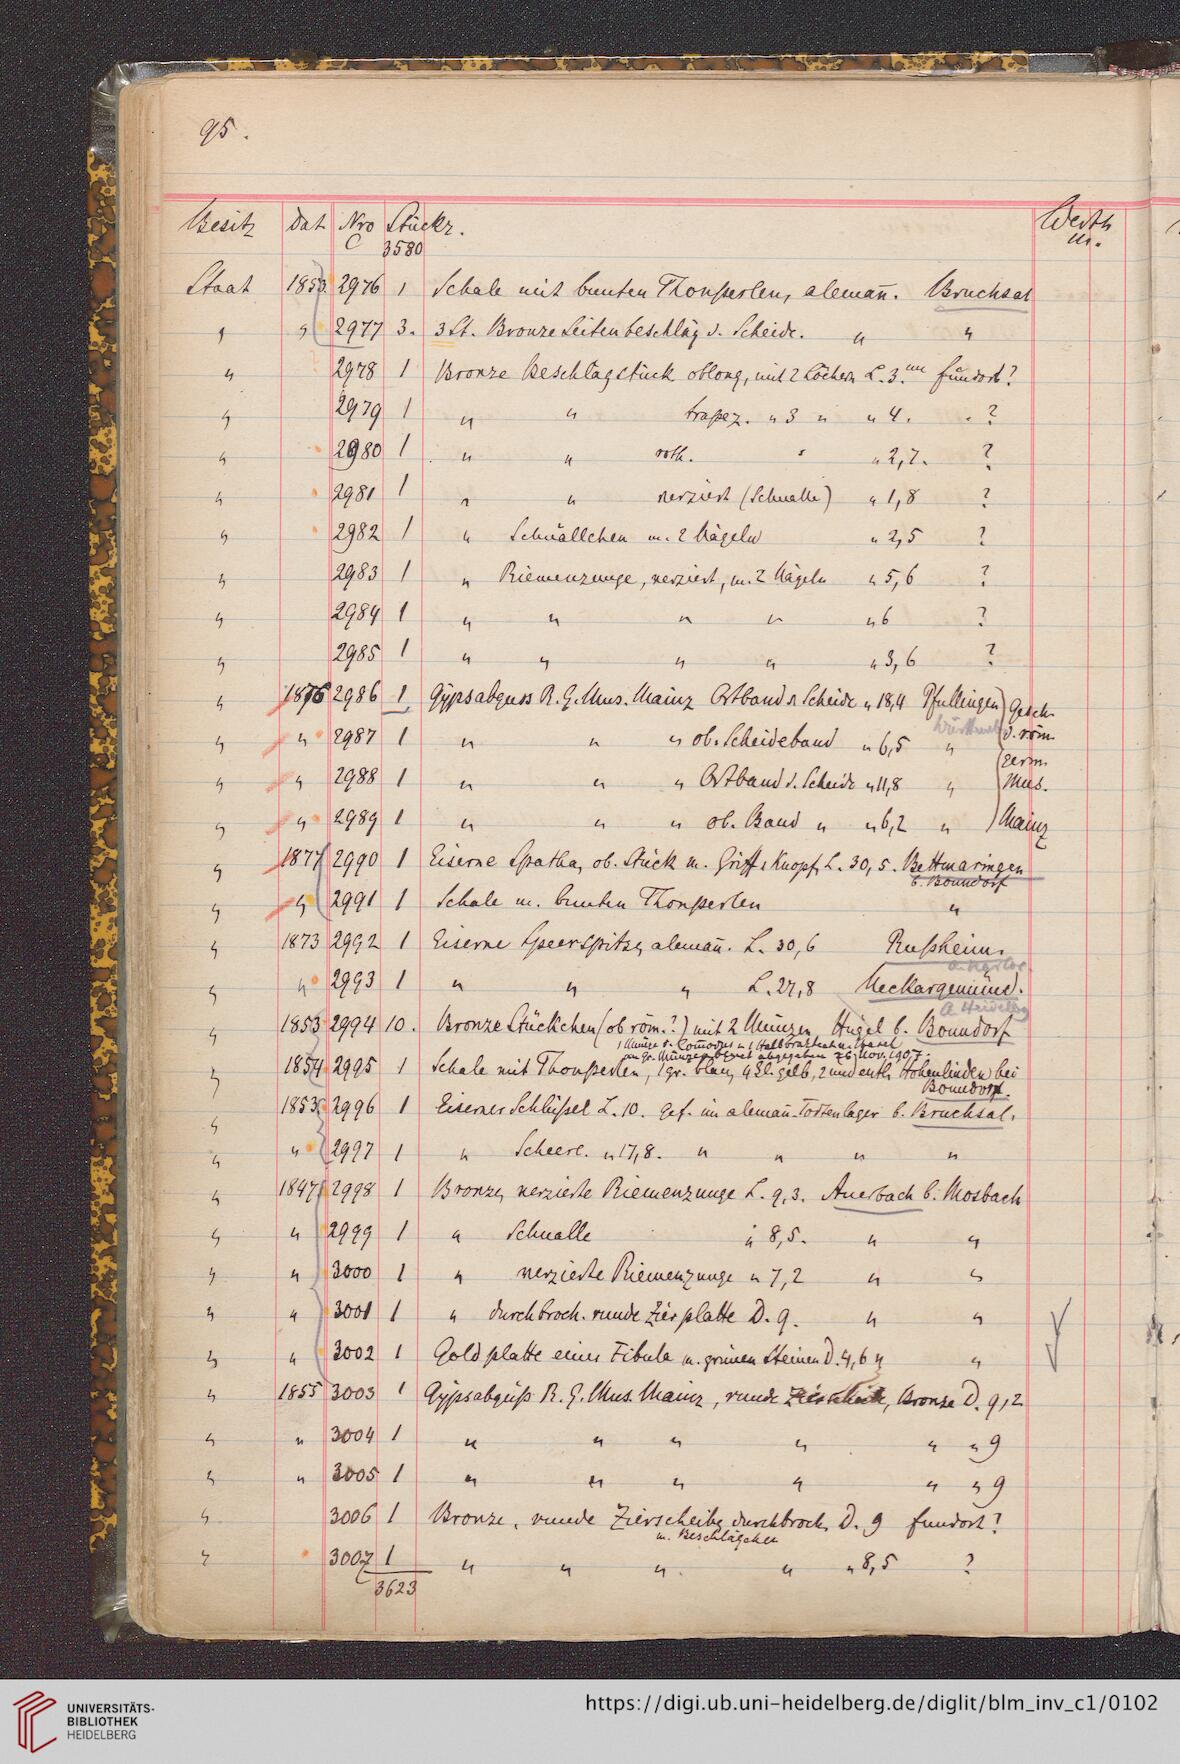 95.
Besitz Dat Nro Stückz. Werth
C 3580 M.
Staat 1853 2976 1 Schale mit bunten Thonperlen, aleman̄. Bruchsal
" " 2977 3. 3 St. Bronze Seitenbeschläg d. Scheide. " "
" 2978 1 Bronze Beschlägstück oblong, mit 2 Löchern L. 3. cm fundort?
" 2979 1 " " trapez. " 3 " " 4. " ?
" 2980 1 " " roth. " " 2,7. ?
" 2981 1 " " verziert (Schnalle) " 1,8 ?
" 2982 1 " Schnällchen m. 2 Nägeln " 2,5 ?
" 2983 1 " Riemenzunge, verziert, m. 2 Nägeln " 5,6 ?
" 2984 1 " " " " " 6 ?
" 2985 1 " " " " " 3,6 ?
" 1876 2986 1 Gÿpsabguss R. G. Mus. Mainz Ortband d. Scheide " 18,4 Pfullingen Gesch.
" " 2987 1 " " " ob. Scheideband " 6,5 " d. röm.
germ.
" " 2988 1 " " " Ortband d. Scheide " 11,8 " Mus.
" " 2989 1 " " " ob. Band " " 6,2 " Mainz
" 1877 2990 1 Eiserne Spatha, ob. Stück m. Griff & Knopf, L. 30,5. Bettmaringen
b. Bonndorf
" " 2991 1 Schale m. bunten Thonperlen "
" 1873 2992 1 Eiserne Speerspitze, aleman̄. L. 30,6 Rußheim.
" " 2993 1 " " " L. 27,8 Neckargemünd.
A. Heidelbg
" 1853 2994 10. Bronze Stückchen (ob röm.?) mit 2 Münzen, Hügel b. Bonndorf
1 Münze v. Com̄odus u. 1 Halbbrakteat u. Basel
an Gr. Münzcabinet abgegeben 26 Nov. 1907.
" 1854 2995 1 Schale mit Thonperlen, 1 gr. blau, 4 kl. gelb, 2 undeutl. Hohenlinden bei
Bonndorf.
" 1853 2996 1 Eiserner Schlüßel L. 10. gef. im aleman̄. Todtenlager b. Bruchsal.
" " 2997 1 " Scheere. " 17,8. " " " "
" 1847 2998 1 Bronze, verzierte Riemenzunge L. 9,3. Auerbach b. Mosbach
" " 2999 1 " Schnalle " 8,5. " "
" " 3000 1 " verzierte Riemenzunge " 7,2 " "
" " 3001 1 " durchbroch. runde Zierplatte D. 9. " "
" " 3002 1 Goldplatte einer Fibula m. grünen Steinen D. 4,6 " "
" 1855 3003 1 Gÿpsabguß R. G. Mus. Mainz, runde Zierscheibe, Bronze D. 9,2
" " 3004 1 " " " " " " 9
" " 3005 1 " " " " " " 9
" 3006 1 Bronze, runde Zierscheibe, durchbroch. D. 9 fundort?
m. Beschlägchen
" 3007 1 " " " " " 8,5 ?
3623
UNIVERSITÄTS-
BIBLIOTHEK
HEIDELBERG
https://digi.ub.uni-heidelberg.de/diglit/blm_inv_c1/0102